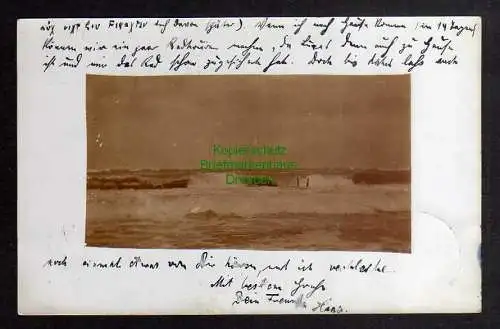 Wenn ich nach Hause komme (in 14 Tagen)
können wir ein paar Radtouren machen, da Lupus dann auch zu Hause
ist und mir das Rad schon zugesichert hat. Doch bis dahin laß auch
Kopierschutz
Briefmarkenhaus
Dresden
noch einmal etwas von Dir hören, und ich verbleibe
Mit bestem Gruße
Dein Freund
Hans.